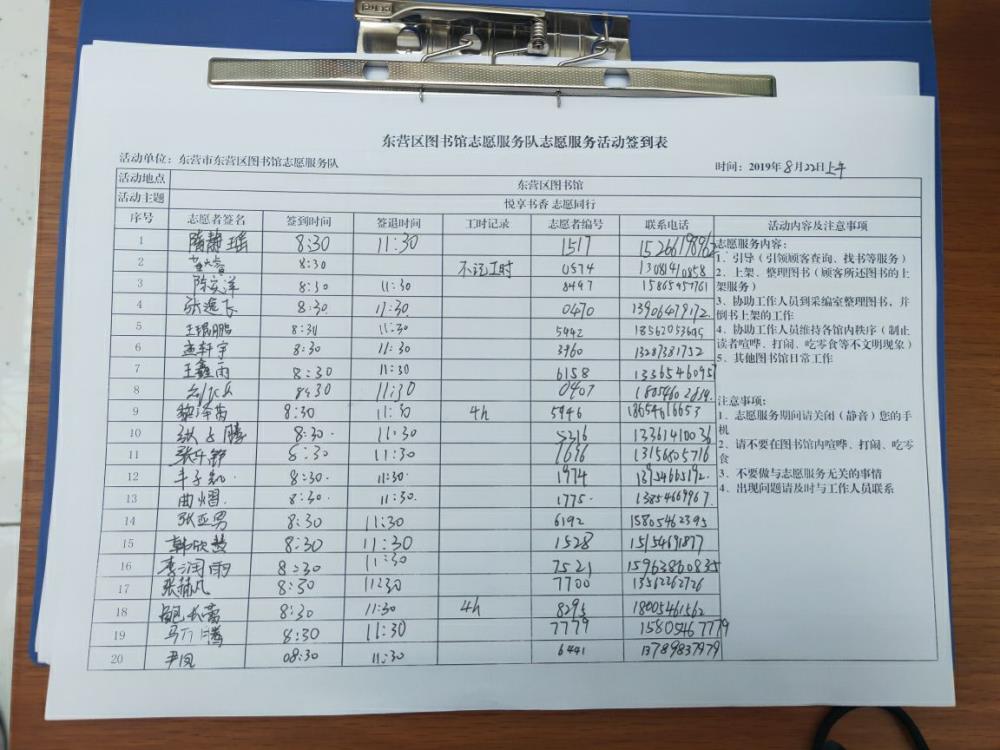 东营区图书馆志愿服务队志愿服务活动签到表
活动单位：东营市东营区图书馆志愿服务队 时间：2019年8月22日上午
活动地点 东营区图书馆
活动主题 悦享书香 志愿同行
序号 志愿者签名 签到时间 签退时间 工时记录 志愿者编号 联系电话 活动内容及注意事项
1 隋静瑶 8:30 11:30 1517
2 8:30 不记工时 0574 13081410858
3 8:30 11:30 8497 15865457761
4 张逸飞 8:30 11:30 0470 13906479172
5 王琨鹏 8:30 11:30 5942
6 孟轩宇 8:30 11:30 3960 13287381752
7 王鑫雨 8:30 11:30 6158
8 8:30 11:30 0407
9 8:30 11:30 4h 5946 18654616653
10 8:30 11:30 5216 13361410036
11 8:30 11:30 1696 13156605716
12 8:30 11:30 1974 13754665192
13 曲熠 8:30 11:30 1775
14 张亚男 8:30 11:30 6192 15805462395
15 韩欣慧 8:30 11:30 1528 15154691877
16 李润雨 8:30 11:30 7521 15963860835
17 8:30 11:30 7700 13562262726
18 8:30 11:30 4h 8295 18005461562
19 8:30 11:30 7779 15805467779
20 尹凤 08:30 11:30 6441 13789837979
志愿服务内容：
1．引导（引领顾客查询、找书等服务）
2．上架、整理图书（顾客所还图书的上
架服务）
3．协助工作人员到采编室整理图书，并
倒书上架的工作
4．协助工作人员维持各馆内秩序（制止
读者喧哗、打闹、吃零食等不文明现象）
5．其他图书馆日常工作
注意事项：
1．志愿服务期间请关闭（静音）您的手
机
2．请不要在图书馆内喧哗、打闹、吃零
食
3．不要做与志愿服务无关的事情
4．出现问题请及时与工作人员联系